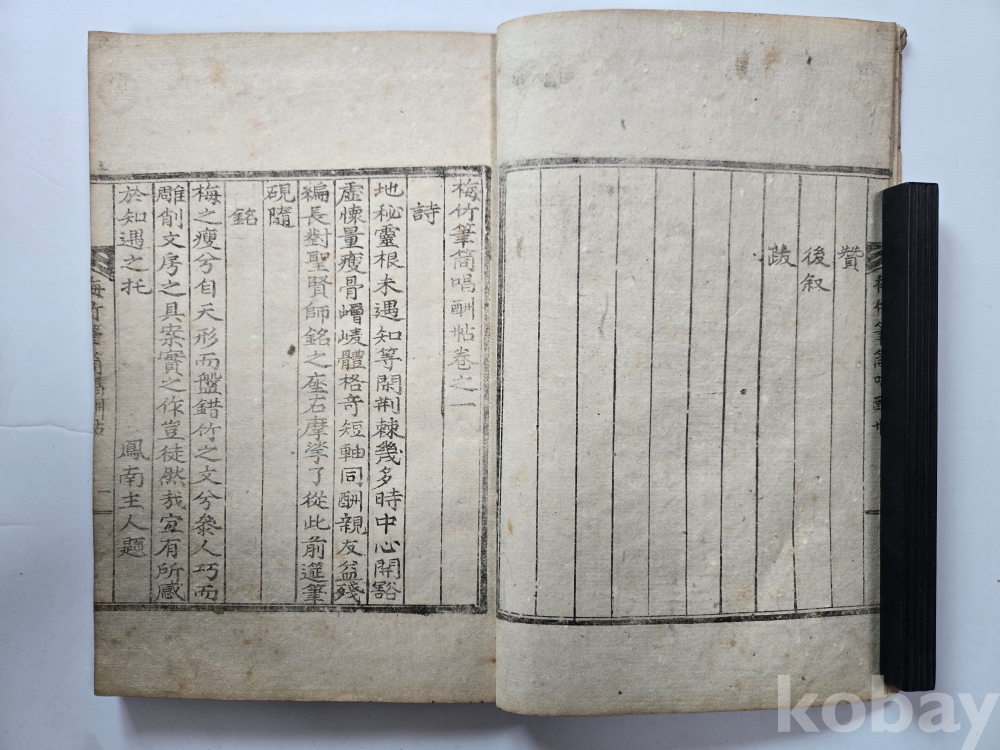 贊
後叙
跋
梅竹筆筒唱酬帖卷之一
詩
地秘靈根未遇知等閑荊棘幾多時中心開豁
虛懷量瘦骨嶒崚體格奇短軸同酬親友益殘
編長對聖賢師銘之座右摩挲了從此前筵筆
硯隨
銘
梅之瘦兮自天形而盤錯竹之文兮叅人巧而
雕削文房之具案實之作豈徒然哉寔有所感
於知遇之托 鳳南主人題
梅竹筆筒唱酬帖 一
kobay